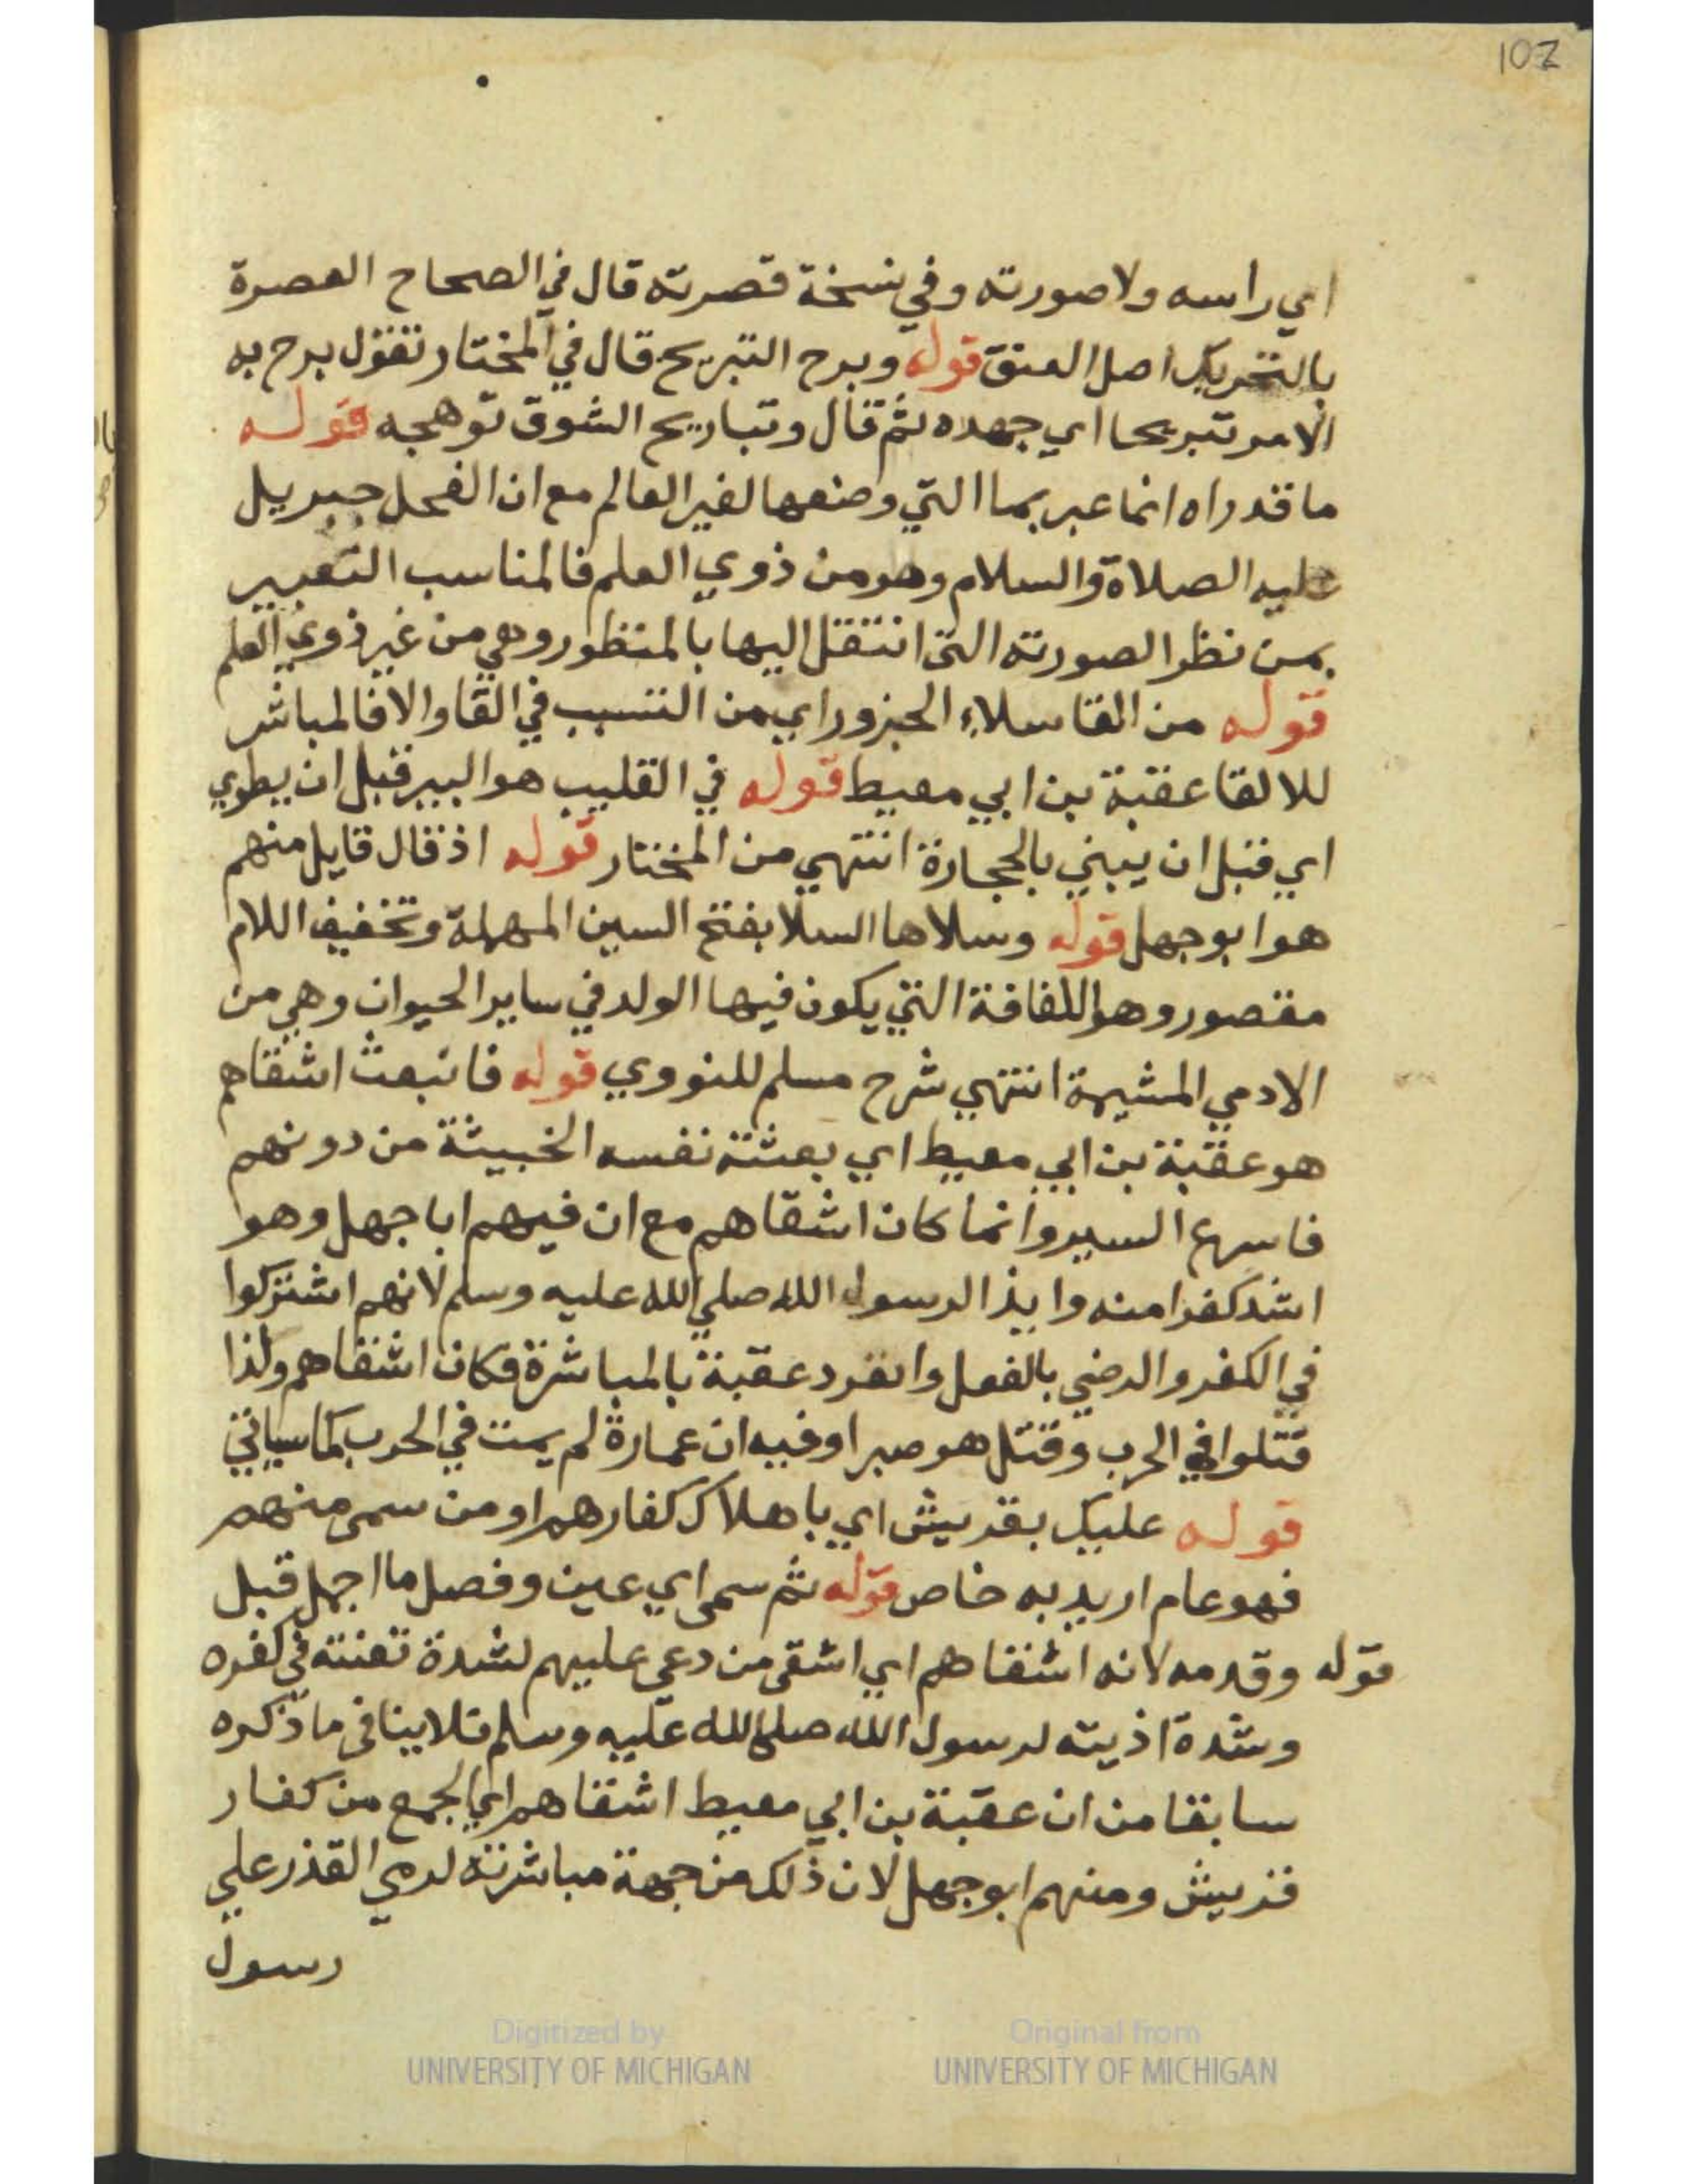 102
اي راسه ولا صورته وفي نسخة قصرته قال في الصحاح القصرة
بالتحريك اصل العنق قوله وبرح التبريح قال في المختار تقول برح به
الامر تبريحا اي جهده ثم قال وتباريح الشوق توهجه قوله
ما قد راه انما عبر بما التي وضعها لغير العالم مع ان الفحل جبريل
عليه الصلاة والسلام وهو من ذوي العلم فالمناسب التعبير
بمن نظرا لصورته التي انتقل اليها بالمنظور وهي من غير ذوي العلم
قوله من القا سلاء الجزور اي من التسبب في القاو الا فالمباشر
للالقا عقبة بن ابي معيط قوله في القليب هو البير قبل ان يطوي
اي قبل ان يبني بالحجارة انتهي من المختار قوله اذ قال قايل منهم
هو ابو جهل قوله وسلاها السلا بفتح السين المهملة وتخفيف اللام
مقصور وهو اللفافة التي يكون فيها الولد في ساير الحيوان وهي من
الادمي المشيمة انتهي شرح مسلم للنووي قوله فانبعث اشقاهم
هو عقبة بن ابي معيط اي بعثته نفسه الخبيثة من دونهم
فاسرع السير وانما كان اشقاهم مع ان فيهم ابا جهل وهو
اشد كفرا منه وايذا لرسول الله صلي الله عليه وسلم لانهم اشتركوا
في الكفر والرضي بالفعل وانفرد عقبة بالمباشرة فكان اشقاهم ولذا
قتلوا في الحرب وقتل هو صبرا وفيه ان عمارة لم يمت في الحرب كما سياتي
قوله عليك بقريش اي باهلاك كفارهم او من سمى منهم
فهو عام اريد به خاص قوله ثم سمى اي عين وفصل ما اجمل قبل
قوله وقدمه لانه اشقاهم اي اشقى من دعي عليهم لشدة تعنته في كفره
وشدة اذيته لرسول الله صلى الله عليه وسلم فلا ينافى ما ذكره
سابقا من ان عقبة بن ابي معيط اشقاهم اي الجمع من كفار
قريش ومنهم ابو جهل لان ذلك من جهة مباشرته لرمي القذر علي
رسول
Digitized by
UNIVERSITY OF MICHIGAN
Original from
UNIVERSITY OF MICHIGAN